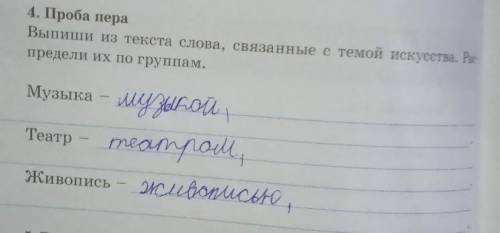 4. Проба пера
Выпиши из текста слова, связанные с темой искусства. Рас-
предели их по группам.
Музыка – музыкой,
Театр – театром,
Живопись – живописью,